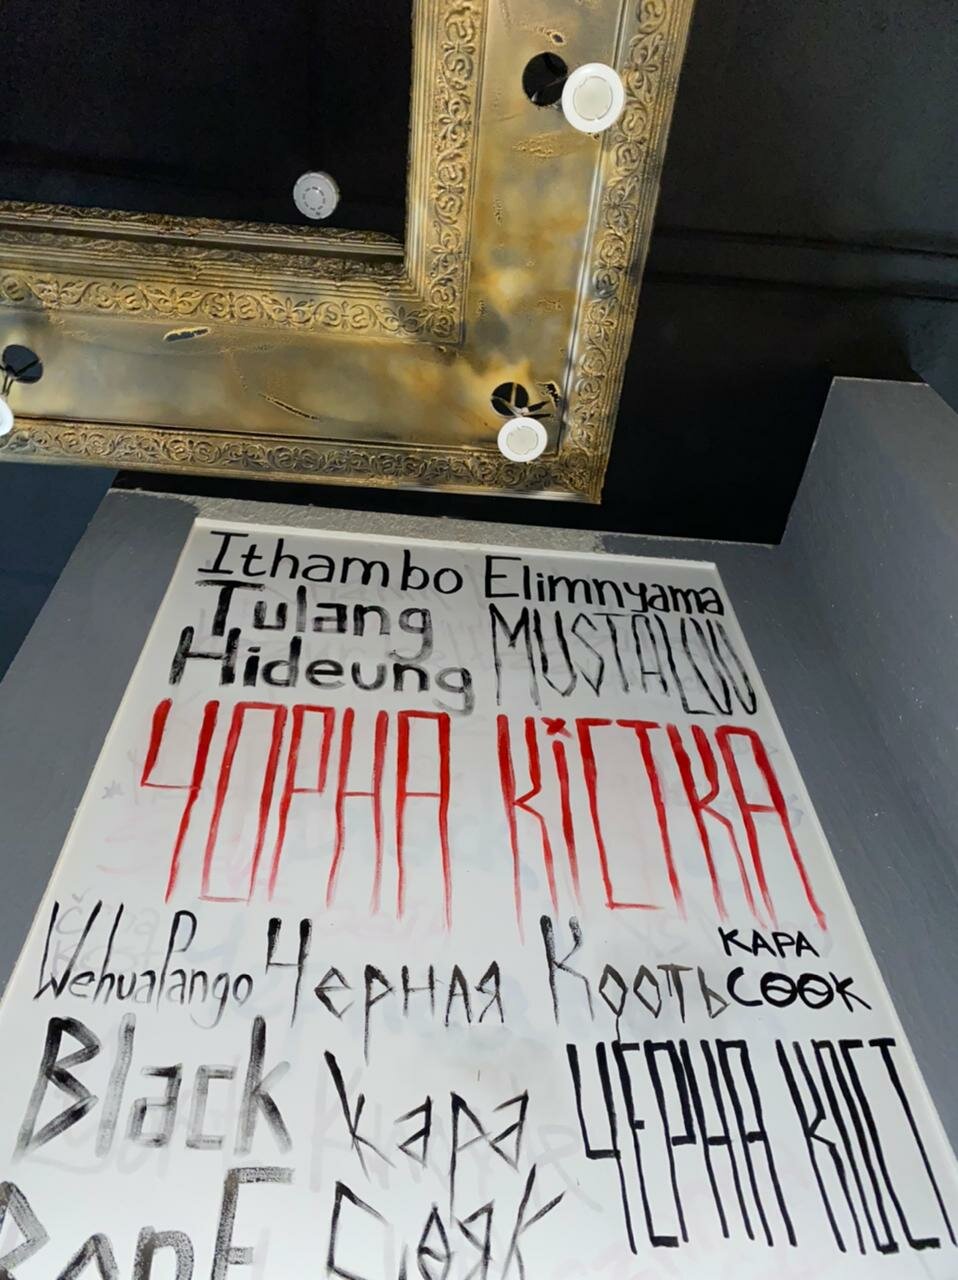 Ithambo Elimnyama
Tulang
Hideung
MUSTALUU
ЧОРНА КіСТКА
Wehualango
Черная Кость
КАРА
СӨӨК
Black
BonE
Кара
Сөяк
ЧЕРНА КОСТ